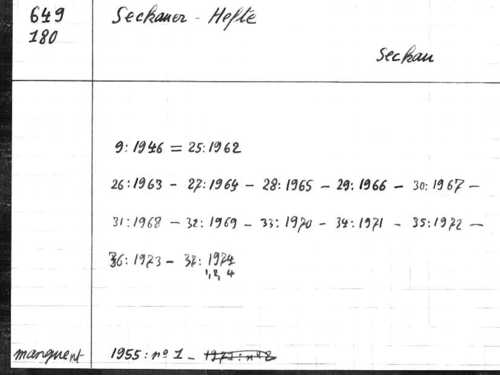 649 Seckauer - Hefte
180
Seckau
9:1946 = 25:1962
26:1963 - 27:1964 - 28:1965 - 29:1966 - 30:1967 -
31:1968 - 32:1969 - 33:1970 - 34:1971 - 35:1972 -
36:1973 - 37:1974
1,2, 4
manquent 1955: nº 1 - 1972: nº 2